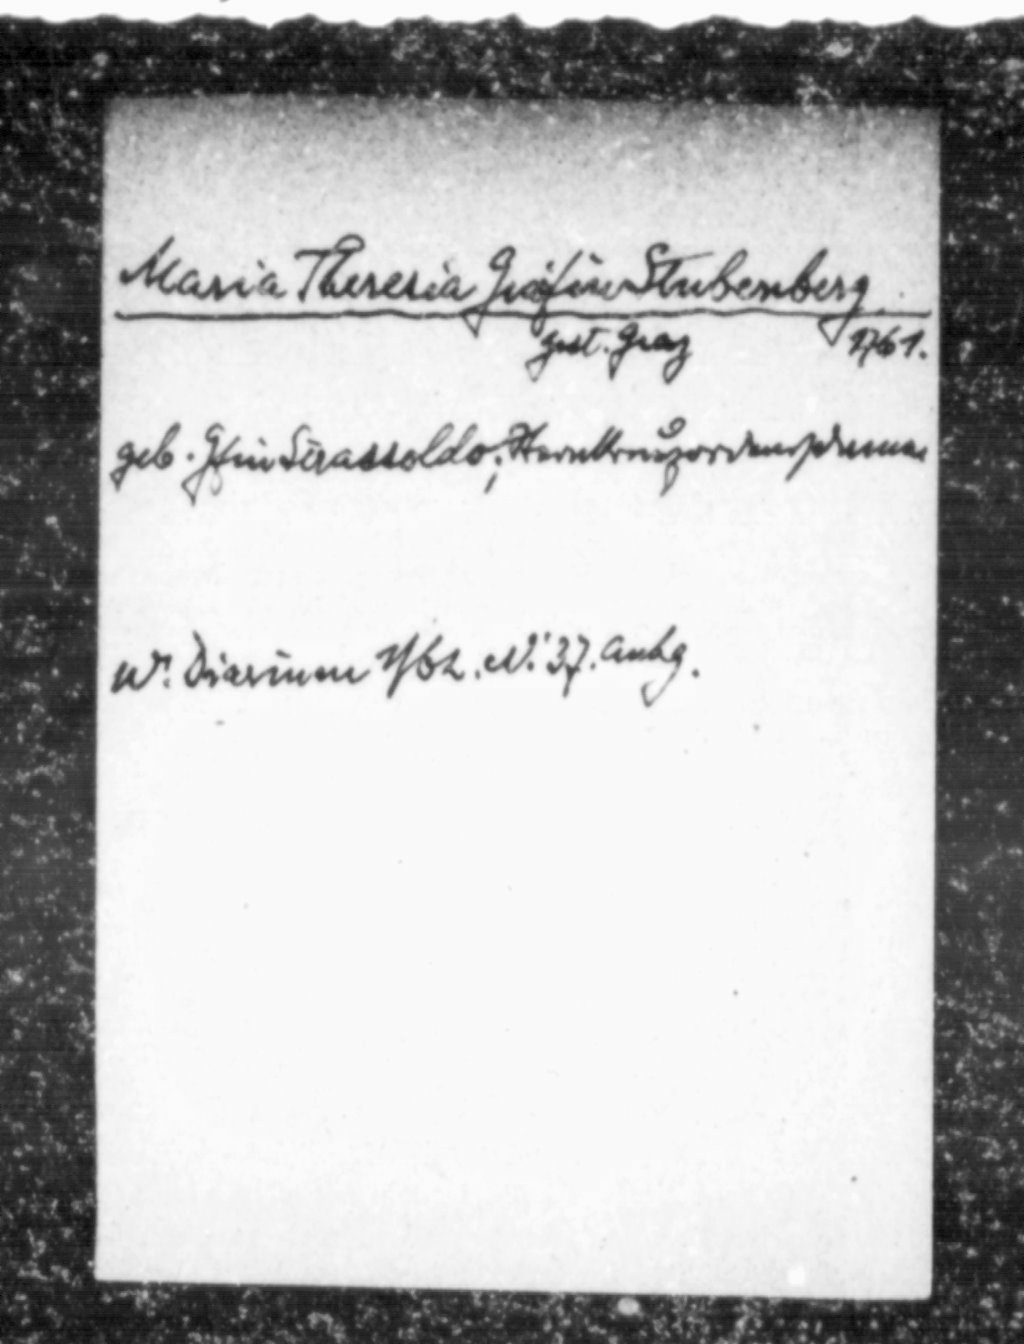 Maria Theresia Gräfin Stubenberg
gest. Graz 1761.
geb. Gfin Strassoldo; Sternkreuzordensdame
Wr. Diarium 1762. N. 37. Anhg.